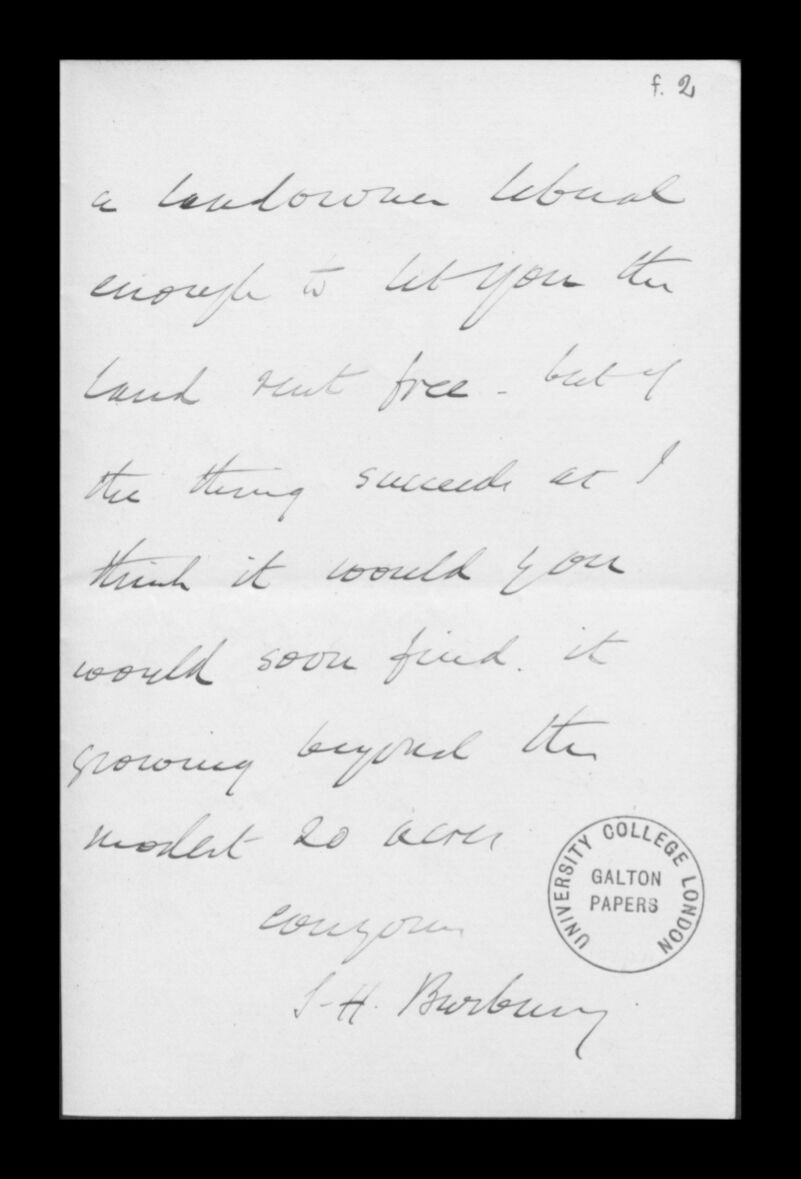 f. 2
a landowner liberal
enough to let you the
land rent free - but if
the thing succeeds as I
think it would you
would soon find. it
growing beyond the
modest 20 acres
S. H. Burbury
UNIVERSITY COLLEGE LONDON
GALTON
PAPERS